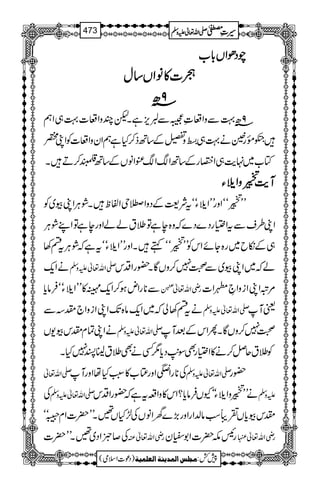 سیرتِ مصطفیٰ صلی اللہ تعالیٰ علیہ وسلم 473
چودھواں باب
ہجرت کا نواں سال
۹ھ
۹ھ بہت سے واقعاتِ عجیبہ سے لبریز ہے۔ لیکن چند واقعات بہت ہی اہم
ہیں جنکو مؤرخین نے بہت ہی بسط و تفصیل کے ساتھ ذکر کیا ہے ہم ان واقعات کو اپنی مختصر
کتاب میں نہایت ہی اختصار کے ساتھ الگ الگ عنوانوں کے ساتھ قلمبند کرتے ہیں۔
آیت تخییر و ایلاء
’’تخییر‘‘ اور ’’ایلاء‘‘ یہ شریعت کے دو اصطلاحی الفاظ ہیں۔ شوہر اپنی بیوی کو
اپنی طرف سے یہ اختیار دے دے کہ وہ چاہے تو طلاق لے لے اور چاہے تو اپنے شوہر
ہی کے نکاح میں رہ جائے اس کو ’’تخییر‘‘ کہتے ہیں۔ اور ’’ایلاء‘‘ یہ ہے کہ شوہر یہ قسم کھا
لے کہ میں اپنی بیوی سے صحبت نہیں کروں گا۔ حضورِ اقدس صلی اللہ تعالیٰ علیہ وسلم نے ایک
مرتبہ اپنی ازواج مطہرات رضی اللہ تعالیٰ عنہن سے ناراض ہو کر ایک مہینہ کا ’’ایلاء‘‘ فرمایا
یعنی آپ صلی اللہ تعالیٰ علیہ وسلم نے یہ قسم کھا لی کہ میں ایک ماہ تک اپنی ازواج مقدسہ سے
صحبت نہیں کروں گا۔ پھر اس کے بعد آپ صلی اللہ تعالیٰ علیہ وسلم نے اپنی تمام مقدس بیویوں
کو طلاق حاصل کرنے کا اختیار بھی سونپ دیا مگر کسی نے بھی طلاق لینا پسند نہیں کیا۔
حضور صلی اللہ تعالیٰ علیہ وسلم کی ناراضگی اور عتاب کا سبب کیا تھا اور آپ صلی اللہ تعالیٰ
علیہ وسلم نے ’’تخییر و ایلاء‘‘ کیوں فرمایا؟ اس کا واقعہ یہ ہے کہ حضورِ اقدس صلی اللہ تعالیٰ علیہ وسلم کی
مقدس بیویاں تقریباً سب مالدار اور بڑے گھرانوں کی لڑکیاں تھیں۔ ’’حضرت ام حبیبہ‘‘
رضی اللہ تعالیٰ عنہا رئیس مکہ حضرت ابوسفیان رضی اللہ تعالیٰ عنہ کی صاحبزادی تھیں۔ ’’حضرت
پیش کش: مجلس المدینة العلمیة (دعوتِ اسلامی)